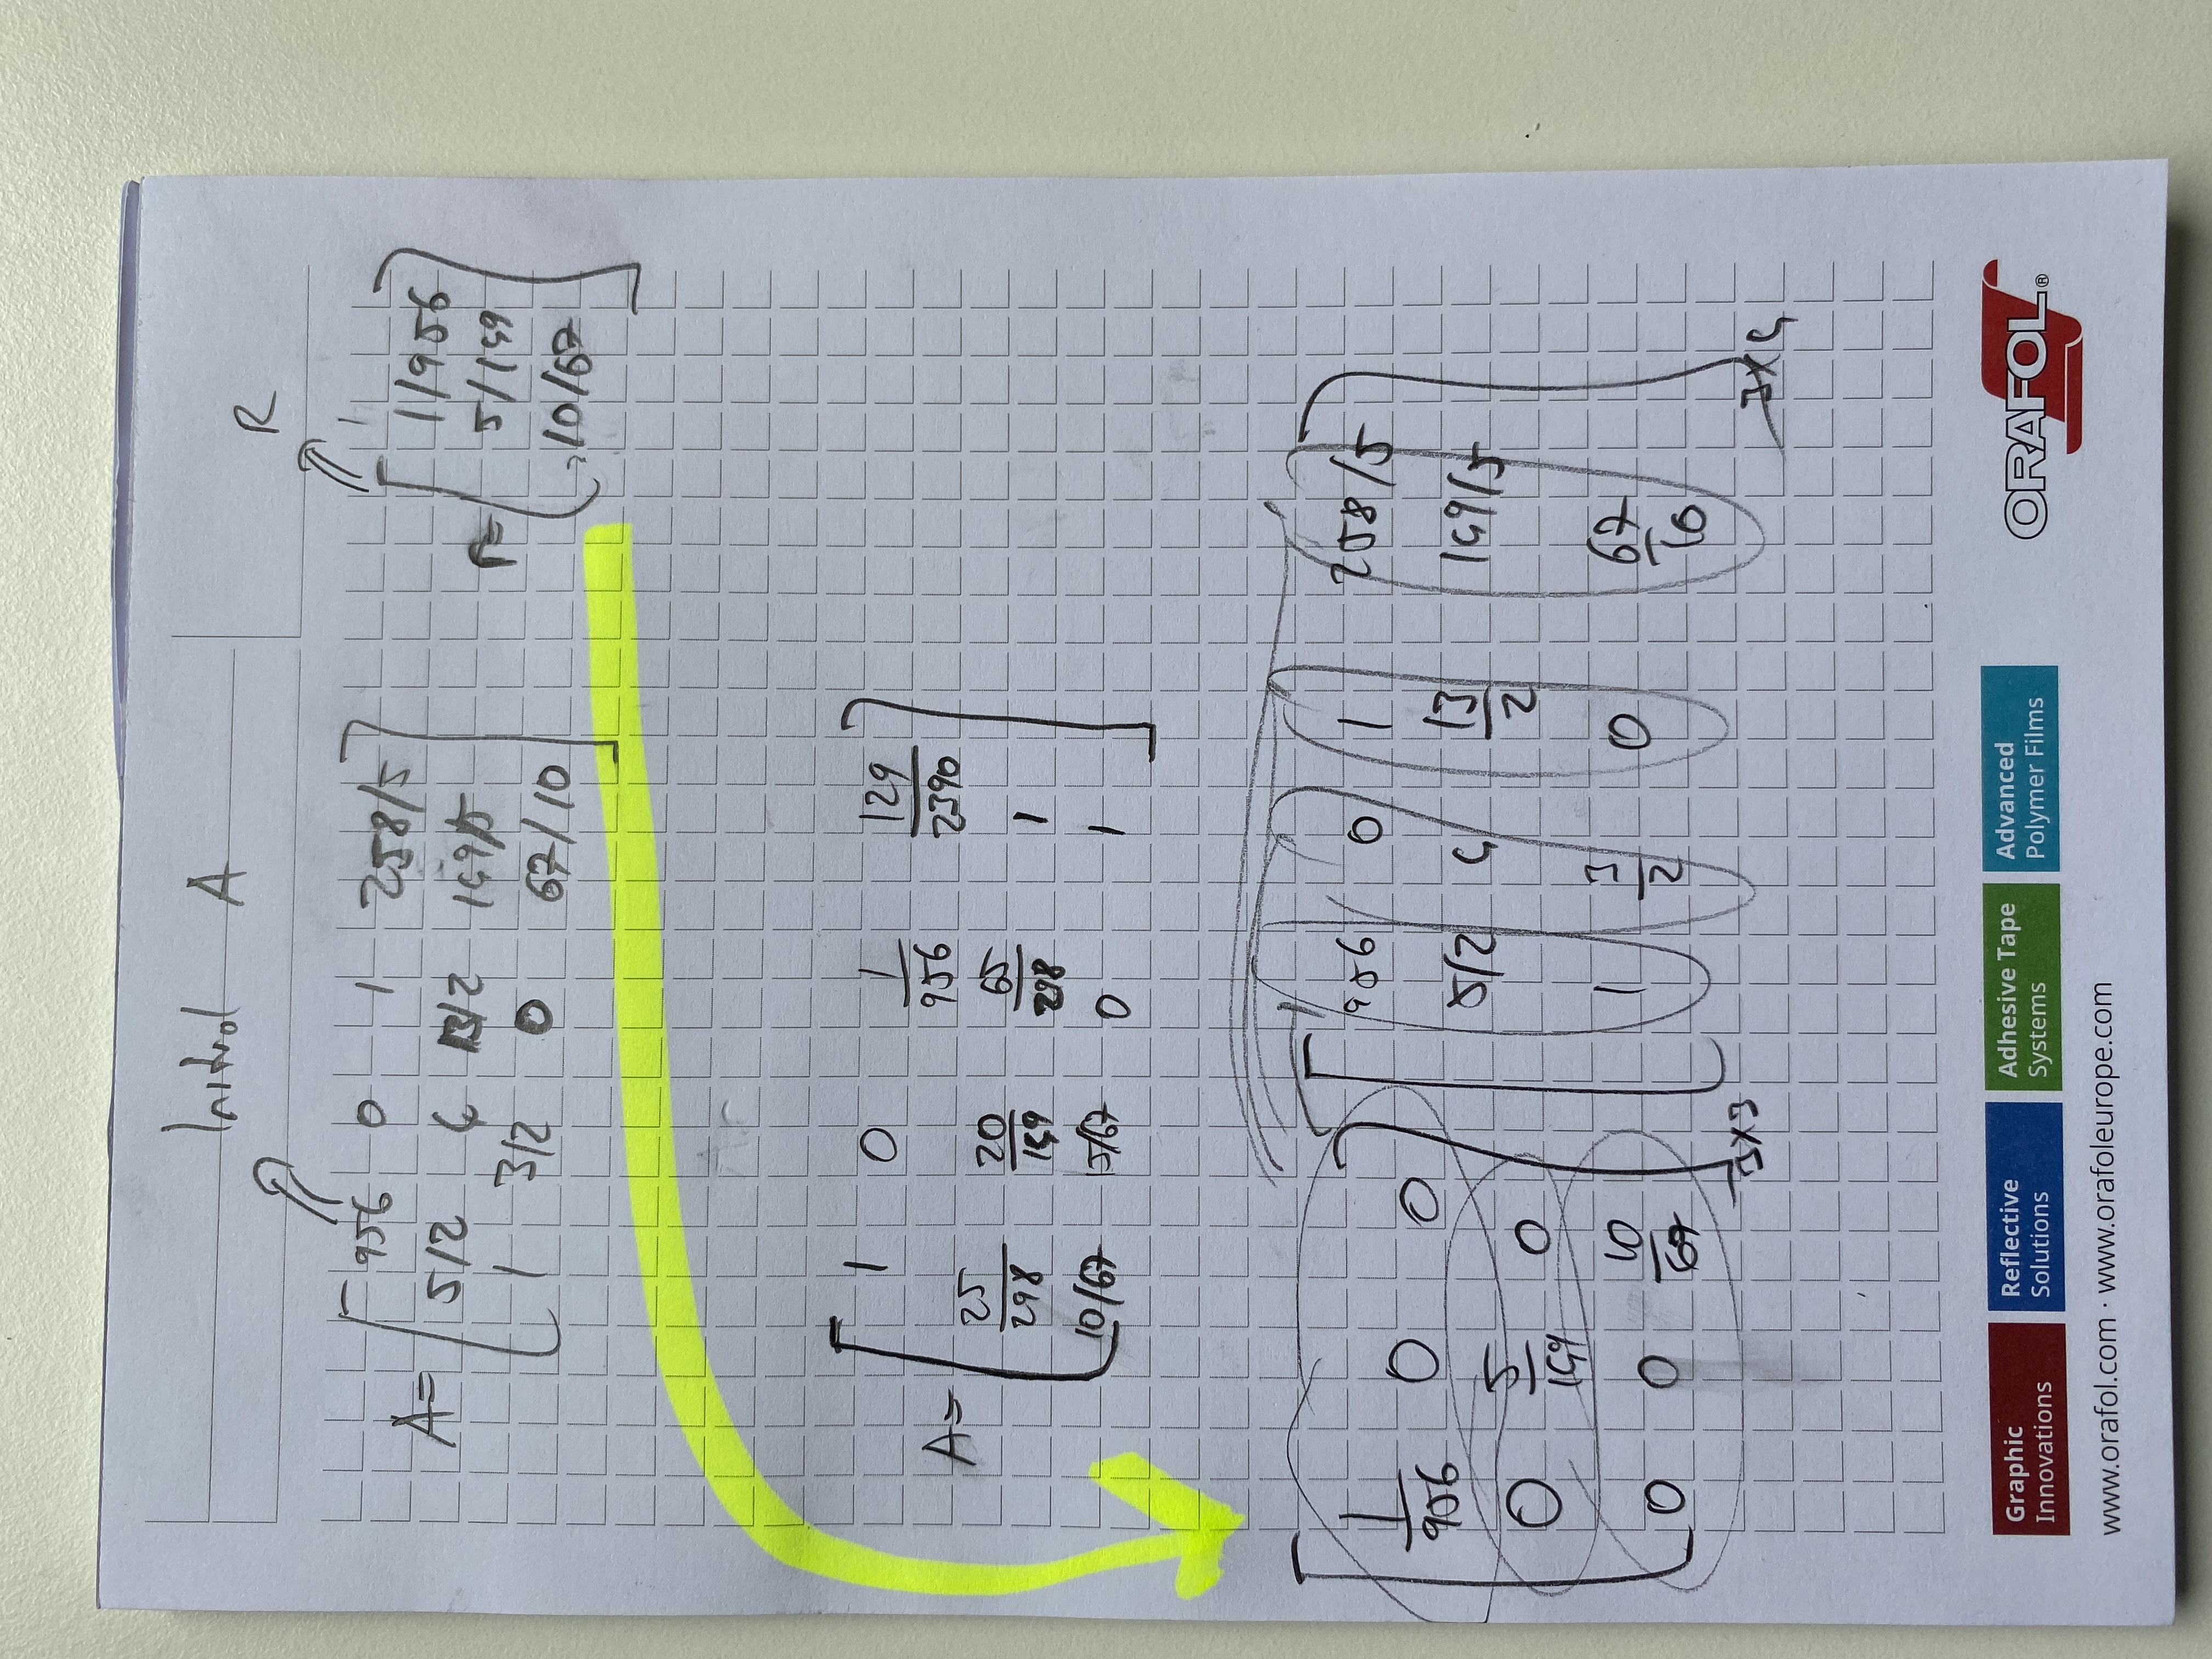 Initial A
R
A= [ 956 0 1 258/5
5/2 4 13/2 149/5
1 3/2 0 67/10 ]
r= [ 1/956
5/149
10/67 ]
A= [ 1 0 1/956 129/2390
25/298 20/149 65/298 1
10/67 15/67 0 1 ]
[ 1/956 0 0
0 5/149 0
0 0 10/67 ] 3x3
[ 956 0 1 258/5
5/2 4 13/2 149/5
1 3/2 0 67/10 ] 3x4
Graphic
Innovations
Reflective
Solutions
Adhesive Tape
Systems
Advanced
Polymer Films
ORAFOL®
www.orafol.com · www.orafoleurope.com